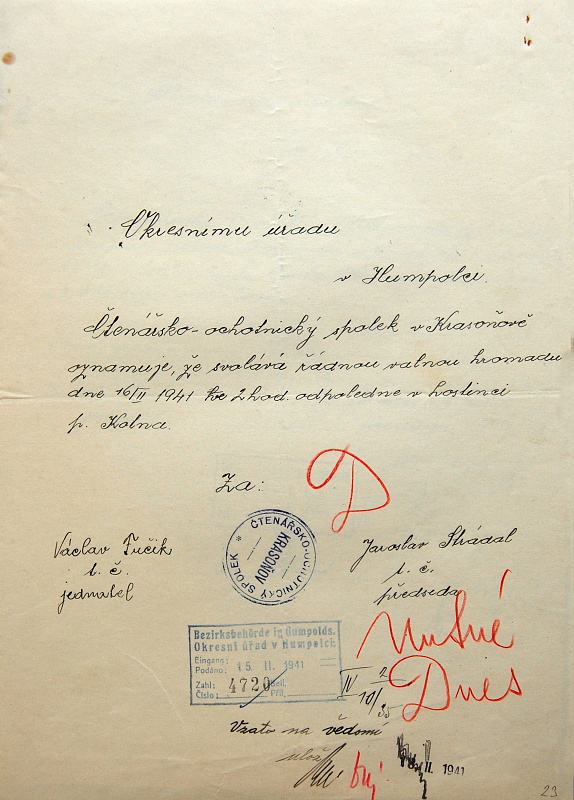 Okresnímu úřadu
v Humpolci.
Čtenářsko-ochotnický spolek v Krasoňově
oznamuje, že svolává řádnou valnou hromadu
dne 16/II 1941 ve 2 hod. odpoledne v hostinci
p. Kolna.
Za:
D
ČTENÁŘSKO-OCHOTNICKÝ SPOLEK *
KRASOŇOV
Václav Fučík
t. č.
jednatel
Jaroslav Strádal
t. č.
předseda
Nutné
Dnes
Bezirksbehörde in Gumpolds.
Okresní úřad v Humpolci
Eingang:
Podáno: 15. II. 1941
Zahl:
Číslo: 4720 Beil.
Příl.
IV 2
10/35
Vzato na vědomí
II. 1941
23